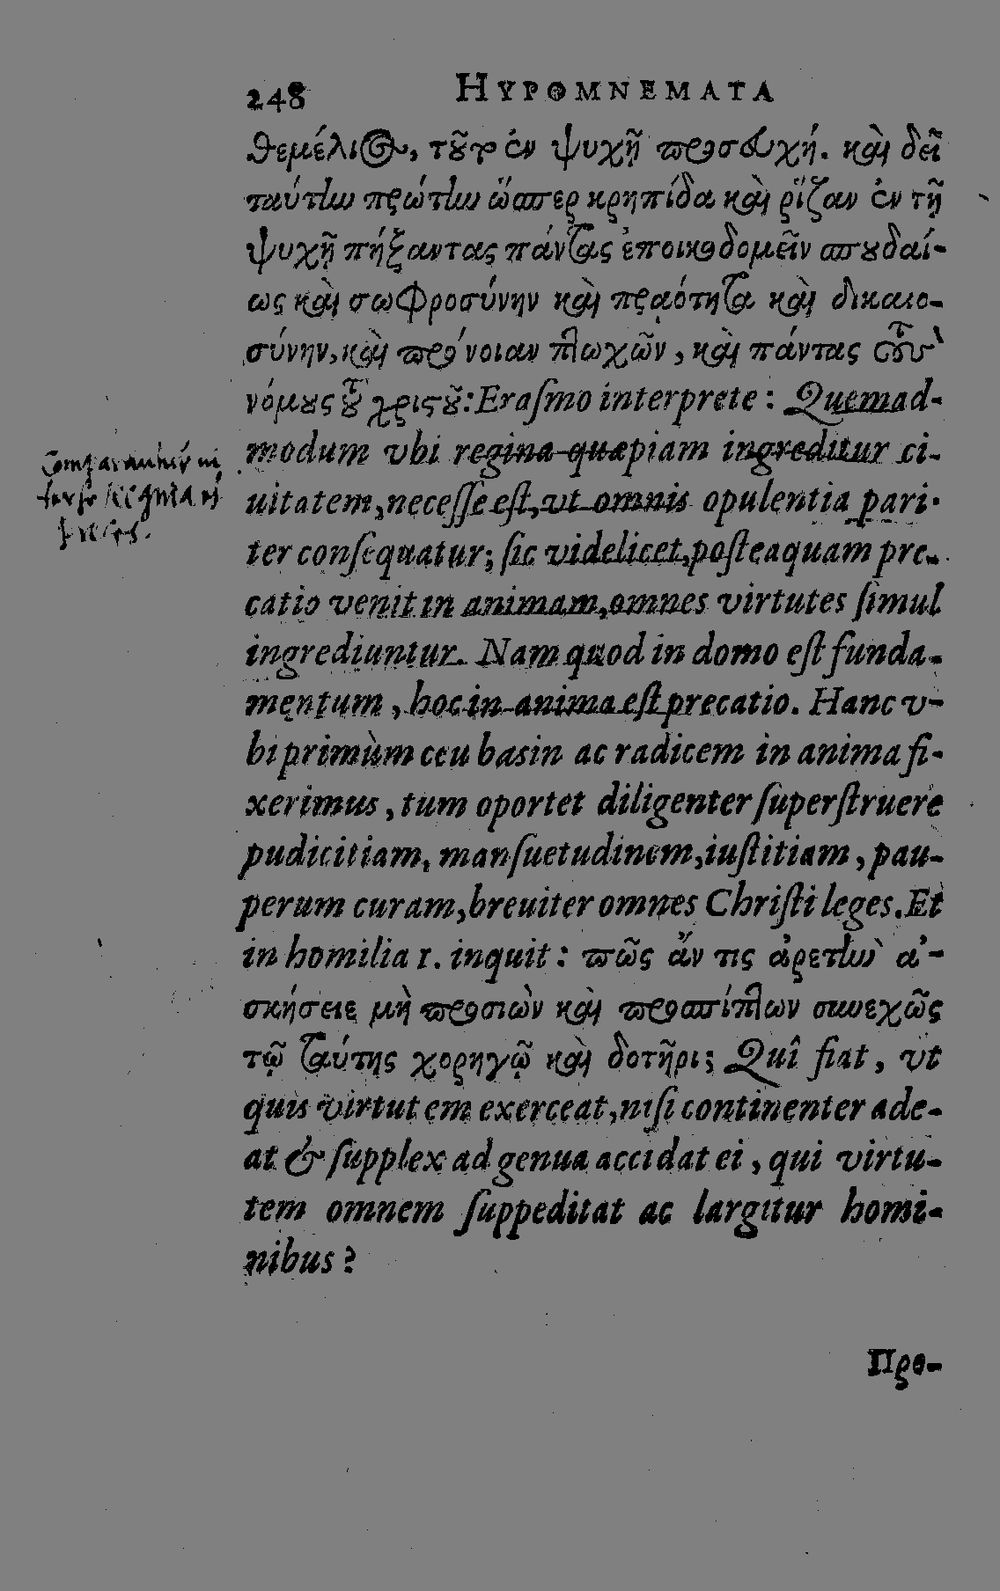 248 HYPOMNEMATA
θεμέλιος, τοῦτο ἐν ψυχῇ προσευχή. καὶ δεῖ
ταύτην πρώτην ὥσπερ κρηπίδα καὶ ῥίζαν ἐν τῇ
ψυχῇ πήξαντας πάντας ἐποικοδομεῖν σπουδαί-
ως καὶ σωφροσύνην καὶ πρᾳότητα καὶ δικαιο-
σύνην, καὶ πρόνοιαν πτωχῶν, καὶ πάντας τοὺς
νόμους τοῦ χριστοῦ: Eraſmo interprete: Quemad-
modum vbi regina quæpiam ingreditur ci-
uitatem, neceſſe eſt, vt omnis opulentia pari-
ter conſequatur; ſic videlicet, poſteaquam pre-
catio venit in animam, omnes virtutes ſimul
ingrediuntur. Nam quod in domo eſt funda-
mentum, hoc in anima eſt precatio. Hanc v-
bi primùm ceu basin ac radicem in anima fi-
xerimus, tum oportet diligenter ſuperſtruere
pudicitiam, manſuetudinem, iuſtitiam, pau-
perum curam, breuiter omnes Chriſti leges. Et
in homilia 1. inquit: πῶς ἄν τις ἀρετὴν ἀ-
σκήσειε μὴ προσιὼν καὶ προσπίπτων συνεχῶς
τῷ ταύτης χορηγῷ καὶ δοτῆρι; Quî fiat, vt
quis virtutem exerceat, niſi continenter ade-
at & ſupplex ad genua accidat ei, qui virtu-
tem omnem ſuppeditat ac largitur homi-
nibus?
Προ-